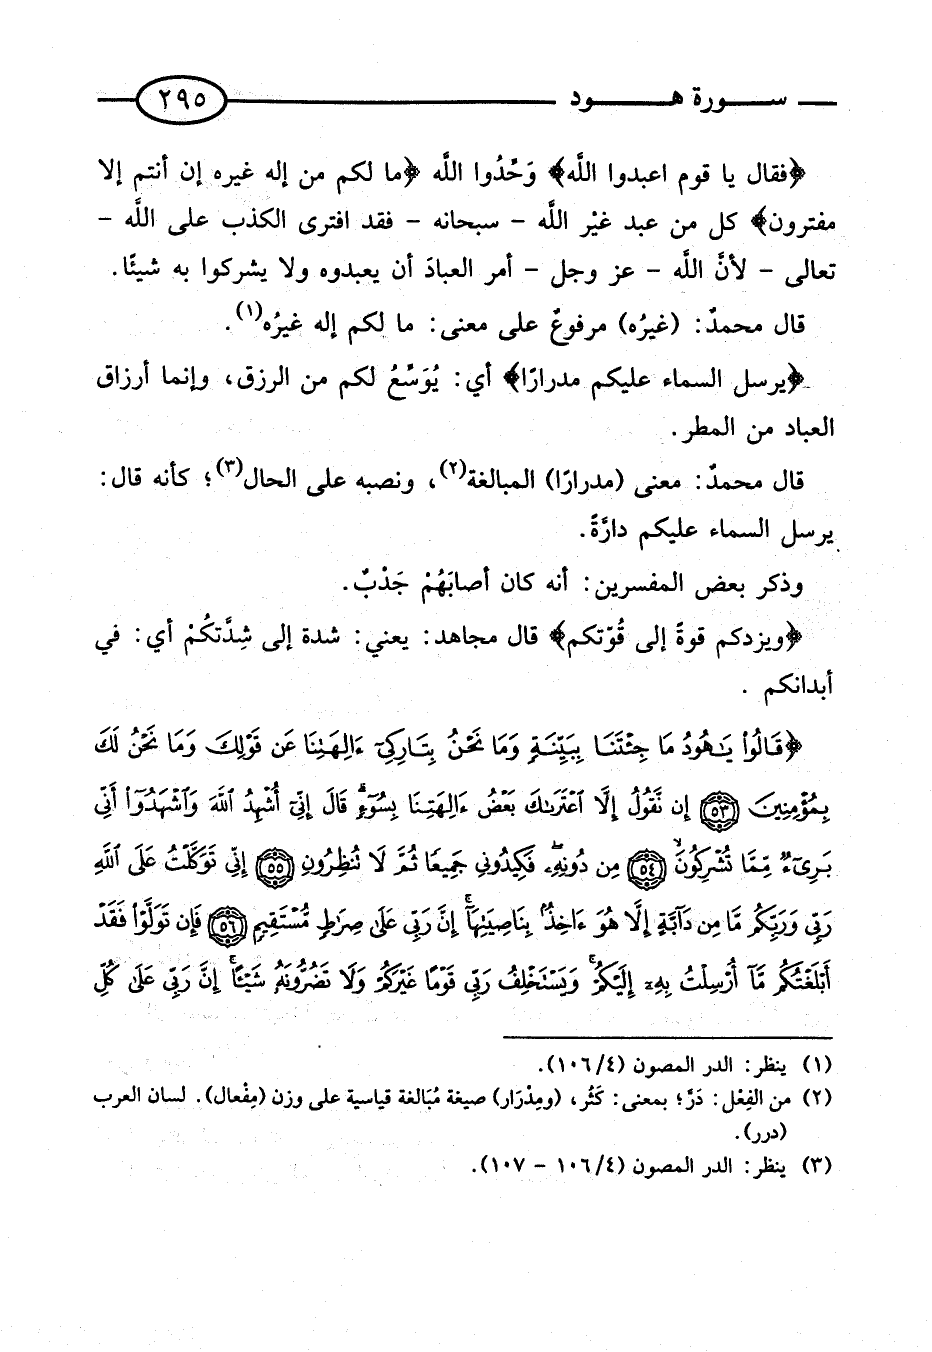 سـورة هـود ٢٩٥
﴿فقال يا قوم اعبدوا اللَّه﴾ وَحِّدُوا اللَّه ﴿ما لكم من إله غيره إن أنتم إلا
مفترون﴾ كل من عبد غيْر اللَّه - سبحانه - فقد افترى الكذب على اللَّه -
تعالى - لأنَّ اللَّه - عز وجل - أمر العبادَ أن يعبدوه ولا يشركوا به شيئًا.
قال محمدٌ: (غيرُه) مرفوعٌ على معنى: ما لكم إله غيرُه(١).
﴿يرسل السماء عليكم مدرارًا﴾ أي: يُوَسِّعُ لكم من الرزق، وإنما أرزاق
العباد من المطر.
قال محمدٌ: معنى (مدرارًا) المبالغة(٢)، ونصبه على الحال(٣)؛ كأنه قال:
يرسل السماء عليكم دارَّةً.
وذكر بعض المفسرين: أنه كان أصابَهُمْ جَدْبٌ.
﴿ويزدكم قوةً إلى قُوّتكم﴾ قال مجاهد: يعني: شدة إلى شِدَّتكُمْ أي: في
أبدانكم .
﴿قَالُوا۟ يَـٰهُودُ مَا جِئْتَنَا بِبَيِّنَةٍ وَمَا نَحْنُ بِتَارِكِىٓ ءَالِهَتِنَا عَن قَوْلِكَ وَمَا نَحْنُ لَكَ
بِمُؤْمِنِينَ ٥٣ إِن نَّقُولُ إِلَّا ٱعْتَرَىٰكَ بَعْضُ ءَالِهَتِنَا بِسُوٓءٍ ۗ قَالَ إِنِّىٓ أُشْهِدُ ٱللَّهَ وَٱشْهَدُوٓا۟ أَنِّى
بَرِىٓءٌ مِّمَّا تُشْرِكُونَ ٥٤ مِن دُونِهِۦ ۖ فَكِيدُونِى جَمِيعًا ثُمَّ لَا تُنظِرُونِ ٥٥ إِنِّى تَوَكَّلْتُ عَلَى ٱللَّهِ
رَبِّى وَرَبِّكُم مَّا مِن دَآبَّةٍ إِلَّا هُوَ ءَاخِذٌۢ بِنَاصِيَتِهَآ ۚ إِنَّ رَبِّى عَلَىٰ صِرَٰطٍ مُّسْتَقِيمٍ ٥٦ فَإِن تَوَلَّوْا۟ فَقَدْ
أَبْلَغْتُكُم مَّآ أُرْسِلْتُ بِهِۦٓ إِلَيْكُمْ ۚ وَيَسْتَخْلِفُ رَبِّى قَوْمًا غَيْرَكُمْ وَلَا تَضُرُّونَهُۥ شَيْـًٔا ۚ إِنَّ رَبِّى عَلَىٰ كُلِّ
(١) ينظر: الدر المصون (١٠٦/٤).
(٢) من الفِعْل: دَرَّ؛ بمعنى: كَثُر، (ومِدْرَار) صيغة مُبَالغة قياسية على وزن (مِفْعال). لسان العرب
(درر).
(٣) ينظر: الدر المصون (١٠٦/٤ - ١٠٧).